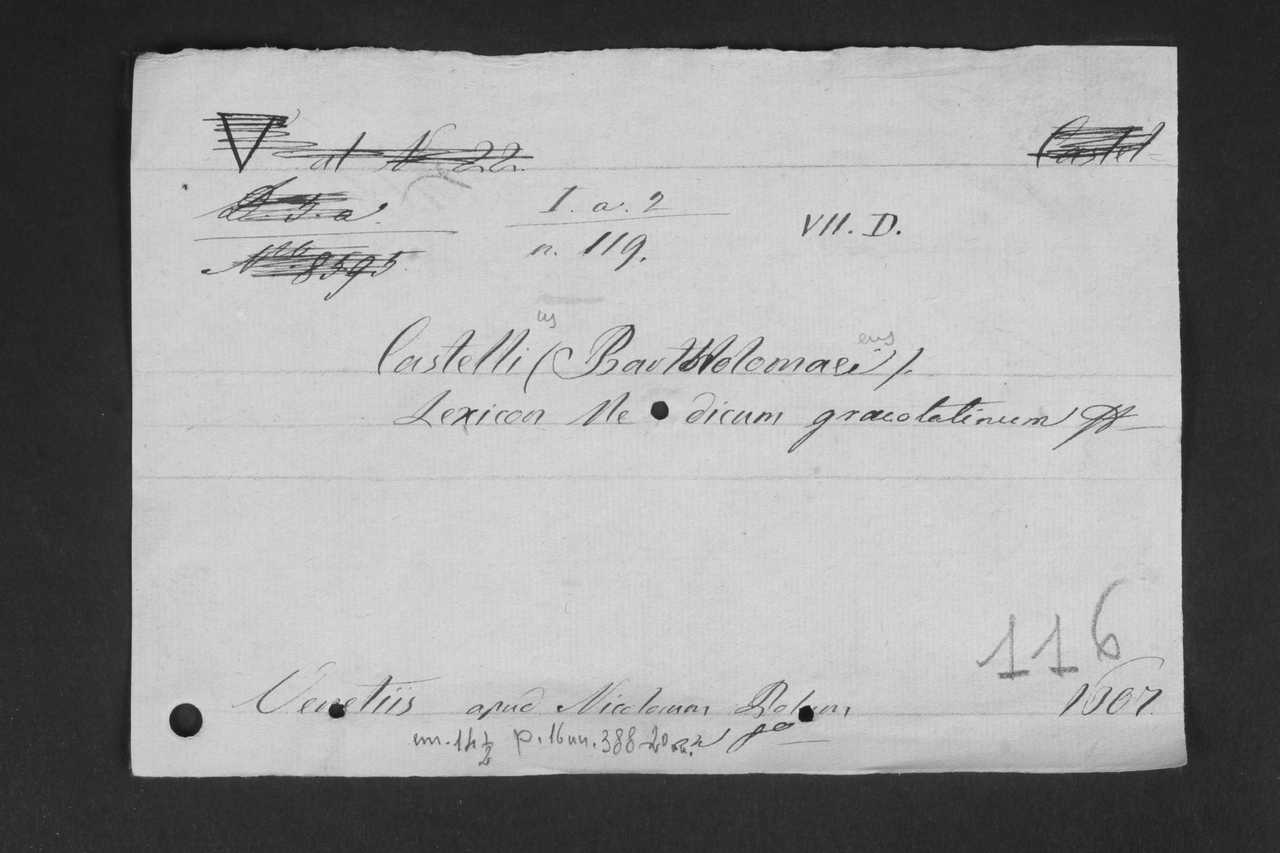 al N 22
Castel
I. a. 2
VII. D.
8595
n. 119.
us
eus
Castelli (Bartholomaei).
Lexicon Medicum graecolatinum
116
Venetiis apud Nicolaum Polum 1607
p. 16 nn. 388